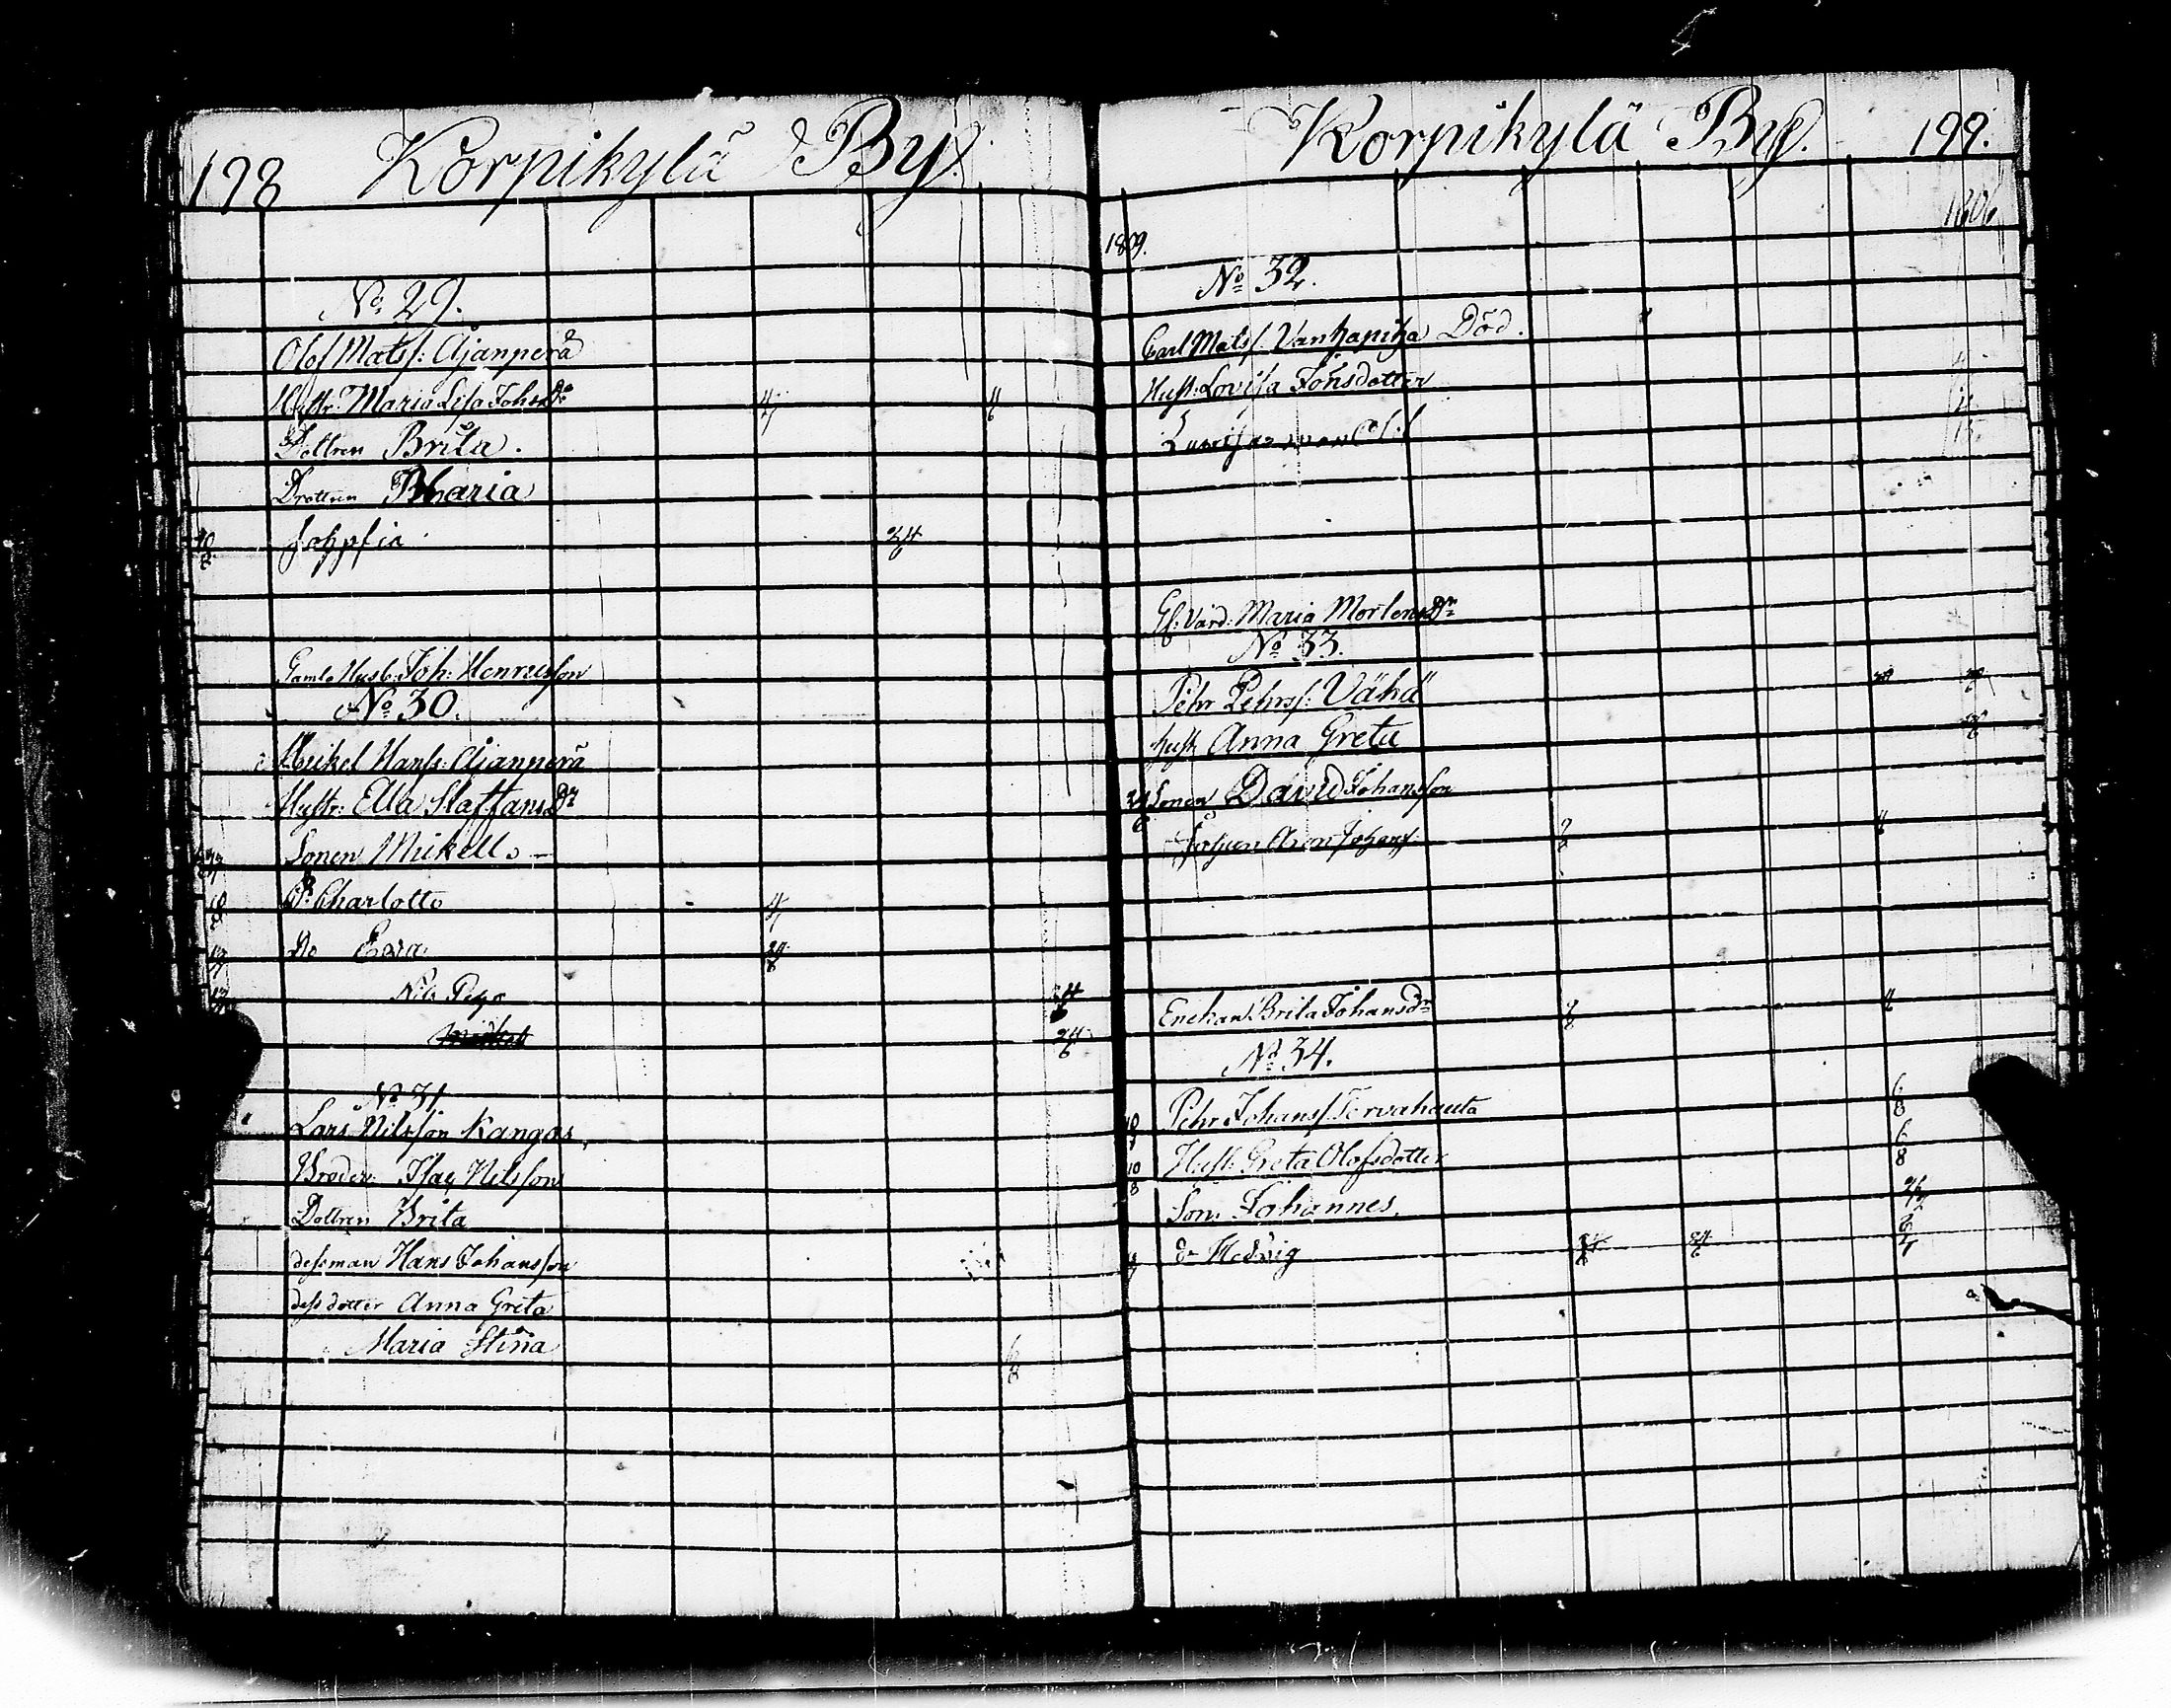 198 Korpikylä By.
No 29.
Olof Matss: Ajanperä
Hustr: Maria Lisa Johs Dr
4/7
Dottren Brita.
Dottren Maria
Sophia
24/6
Gamle Husb: Joh: Henricsson
No 30.
Mickel Hanss: Ajanperä
Hustr: Ella Staffans Dr
Sonen Mickell
Dr Charlotta
4/7
Do Eva
Nils Pehr
24/6
No 31
Lars Nilsson Kangas,
Broder: Isac Nilsson
Dottren Brita
dessman Hans Johansson
dess dotter Anna Greta
Maria Stina
Korpikylä By. 199.
1806
1809.
No 32.
Carl Matss. Vanhapiha Död.
Hust: Lovisa Jönsdotter
Maria Mortens Dr
No 33.
Pehr Pehrs: Vähä
hust Anna Greta
Sonen David Johansson
Aron Johans:
Enekan Brita Johansdr
No 34.
Pehr Johanss Tervahauta
6/8
10/8 Hust: Greta Olofsdotter
6/8
Son: Johannes.
dr Hedvig
24/6